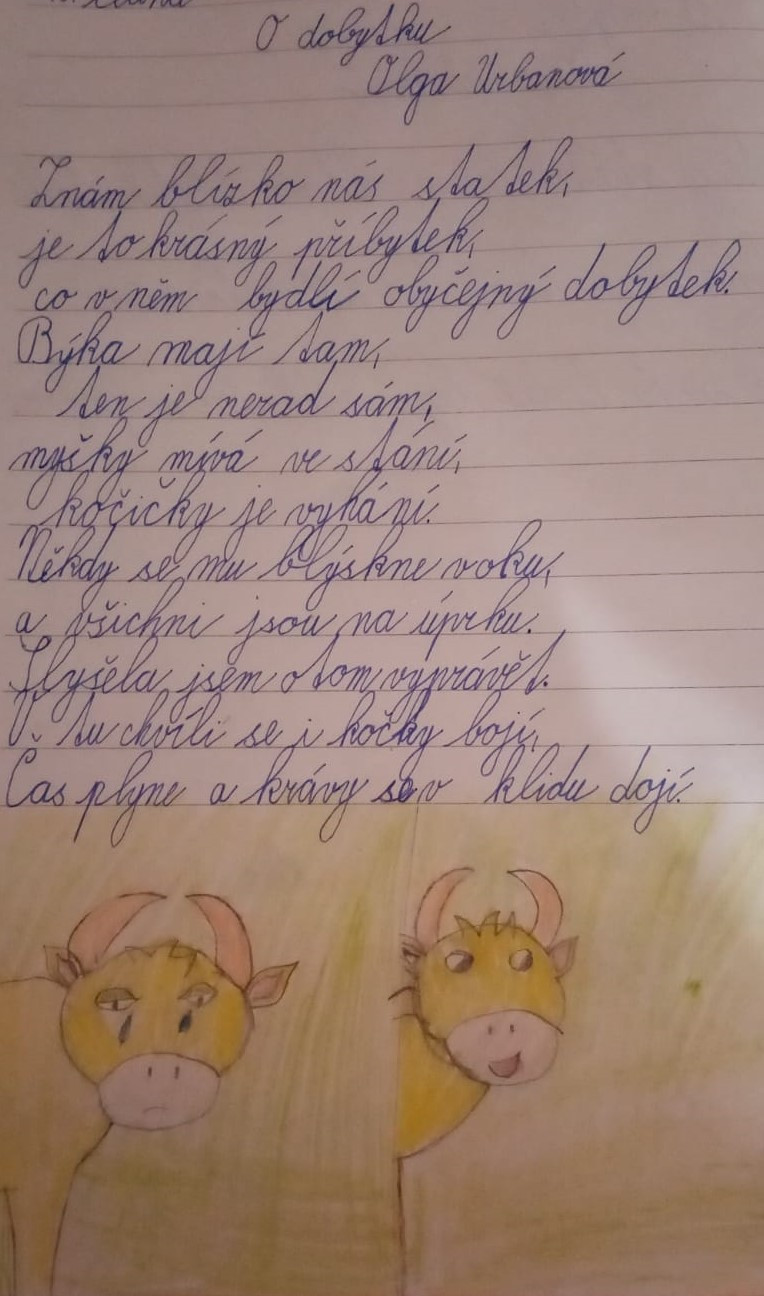 O dobytku
Olga Urbanová
Znám blízko nás statek,
je to krásný příbytek,
co v něm bydlí obyčejný dobytek.
Býka mají tam,
ten je nerad sám,
myšky mívá ve stání,
kočičky je vyhání.
Někdy se mu blýskne v oku,
a všichni jsou na úprku.
Slyšela jsem o tom vyprávět.
V tu chvíli se i kočky bojí,
Čas plyne a krávy se v klidu dojí.